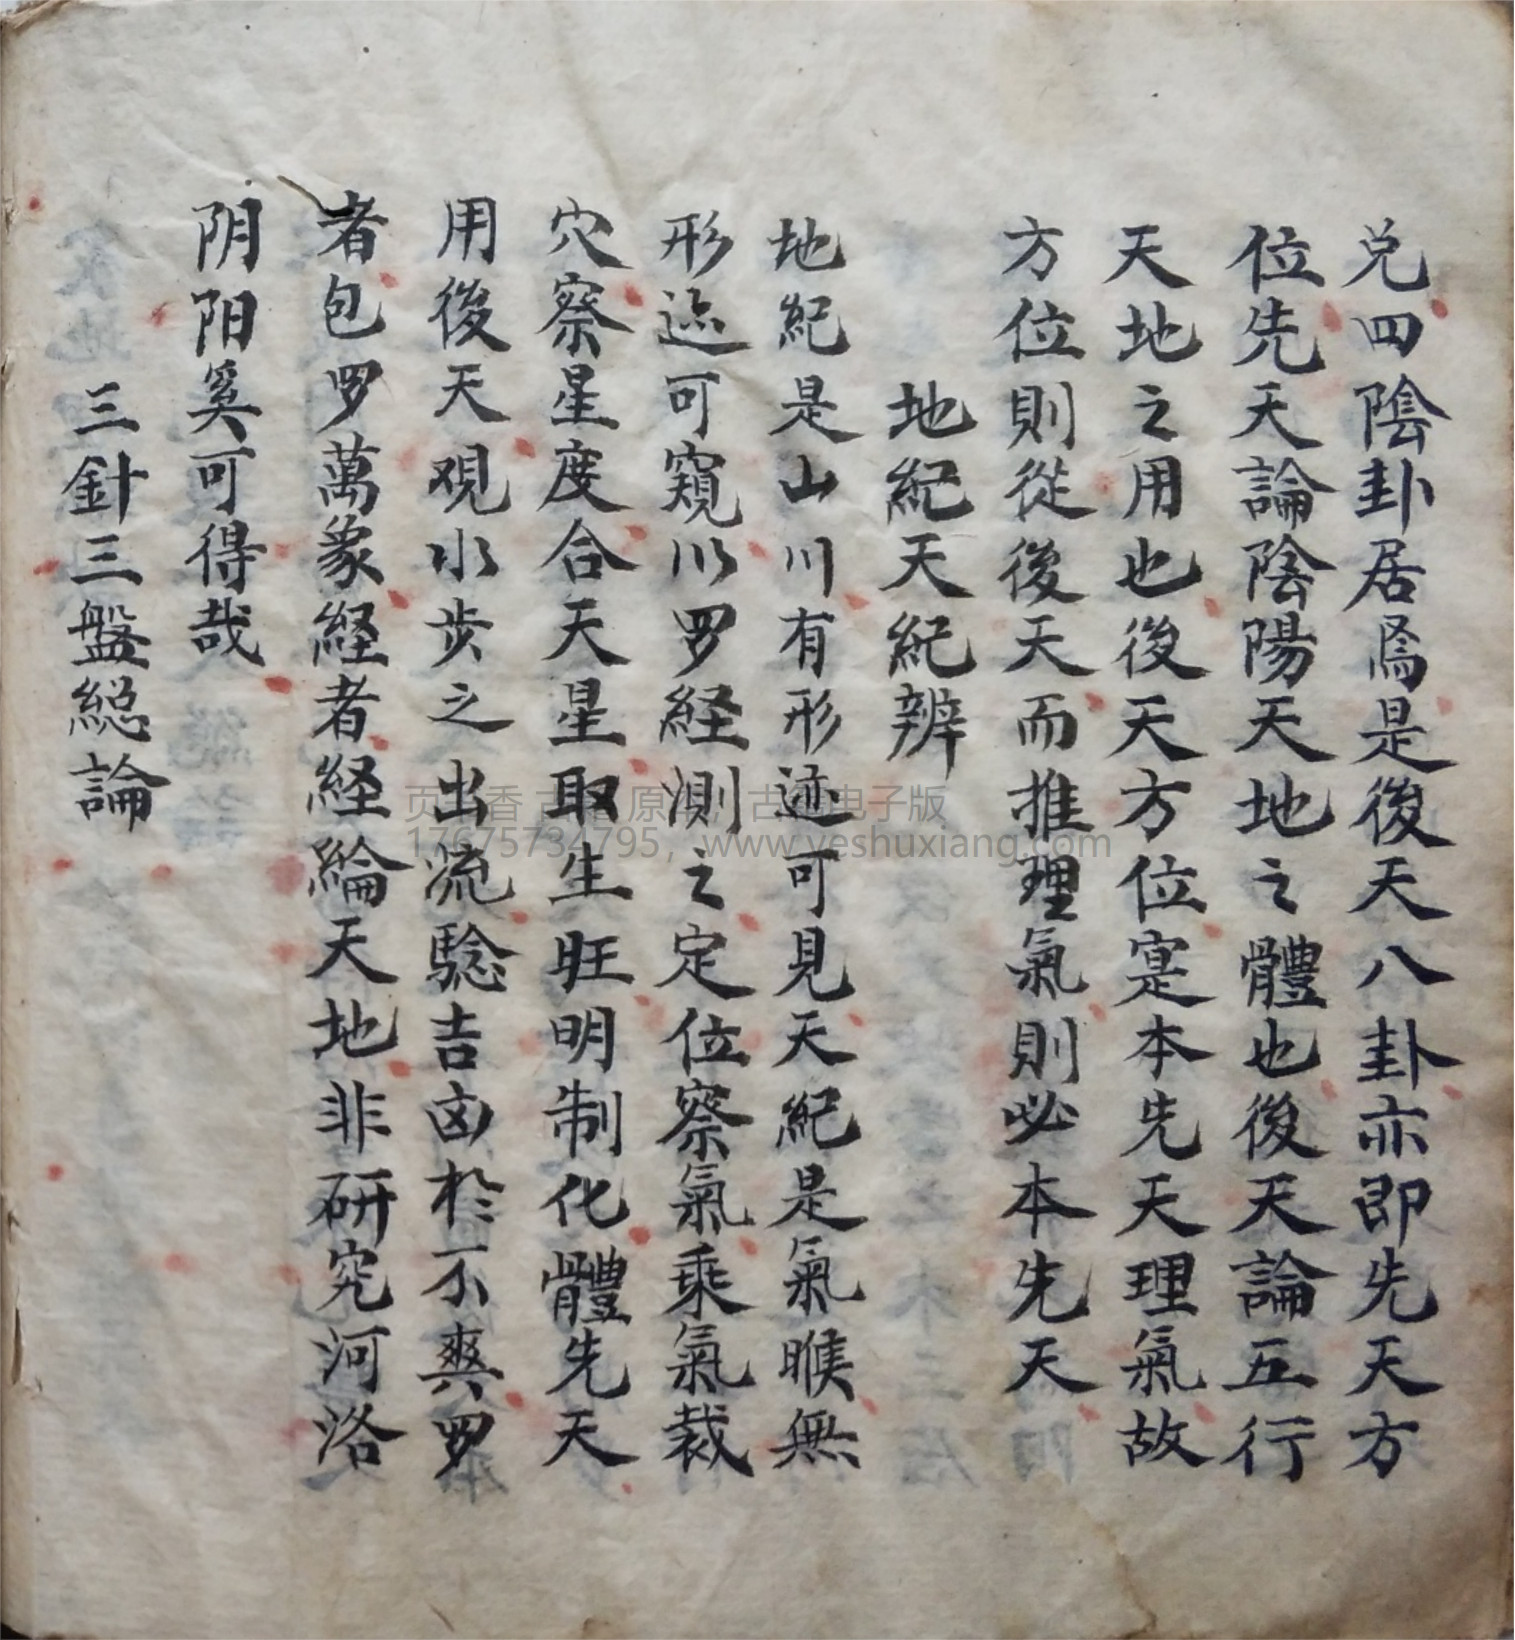 兑四陰卦居焉是後天八卦亦即先天方
位先天論陰陽天地之體也後天論五行
天地之用也後天方位寔本先天理氣故
方位則從後天而推理氣則必本先天
地紀天紀辨
地紀是山川有形迹可見天紀是氣睺無
形迹可窺以罗経測之定位察氣乘氣裁
穴察星度合天星取生旺明制化體先天
用後天观水步之出流騐吉凶於不爽罗
者包罗萬象経者経綸天地非研究河洛
阴阳奚可得哉
三針三盤総論
17675734795, www.yeshuxiang.com